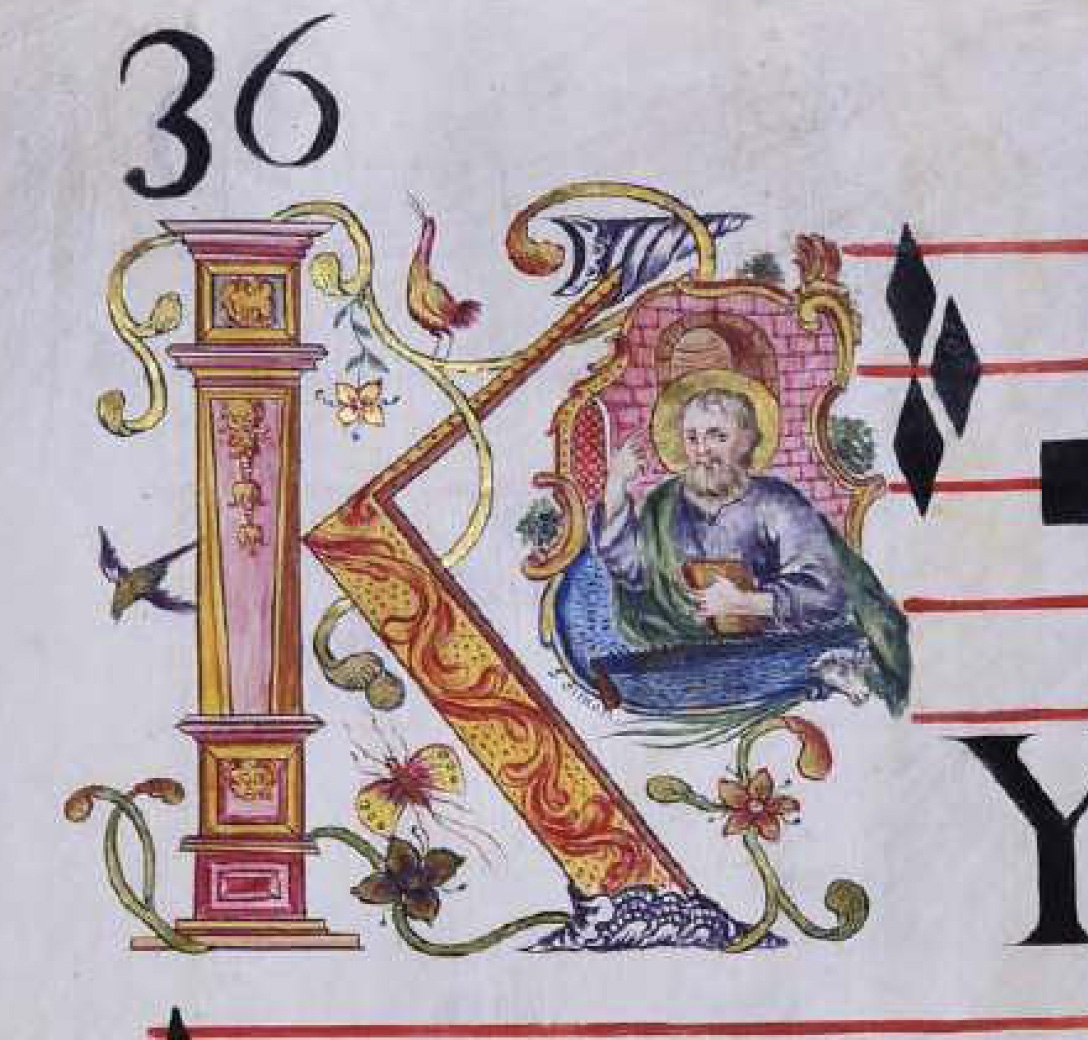 36
K
Y